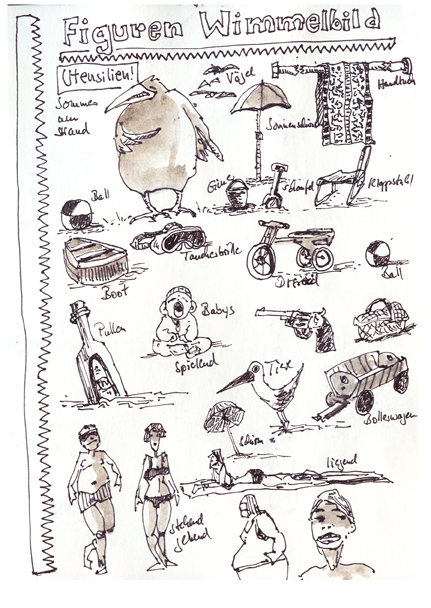 Figuren Wimmelbild
Utensilien!
Sommer
am
Strand
Vögel
Handtuch
Sonnenschirm
Ball
Eimer
Schaufel
Klappstuhl
Taucherbrille
Dreirad
Ball
Boot
Pullen
Babys
spielend
Tier
Bolleswagen
Schirm
liegend
stehend
gehend